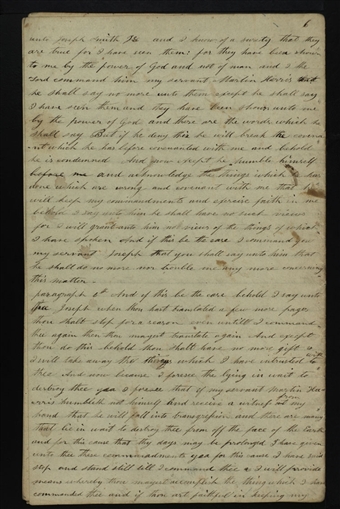 6
unto Joseph Smith Jr and I know of a surety that they
are true for I have seen them for they have been shown
to me by the power of God and not of man and I the
Lord command him my servant Martin Harris that
he shall say no more unto them except he shall say
I have seen them and they have been shown unto me
by the power of God and these are the words which he
shall say But if he deny this he will break the covena
nt which he has before covenanted with me and behold
he is condemned And now except he humble himself
before me and acknowledge the things which he has
done which are wrong and covenant with me that he
will keep my commandments and exercise faith in me
behold I say unto him he shall have no such views
for I will grant unto him no views of the things of which
I have spoken And if this be the case I command you
my servant Joseph that you shall say unto him that
he shall do no more nor trouble me any more concerning
this matter
paragraph 6th And if this be the case behold I say unto
thee Joseph when thou hast translated a few more pages
thou shalt stop for a season even untill I command
thee again then thou mayest translate again And except
thou do this behold thou shalt have no more gift &
I will take away the things which I have intrusted with
thee And now because I forsee the lying in wait to
destroy thee yea I forsee that if my servant Martin Ha
rris humbleth not himself and receive a witness from my
hand that he will fall into transgression and there are many
that lie in wait to destroy thee from off the face of the earth
and for this cause that thy days may be prolonged I have given
unto thee these commandments yea for this cause I have said
stop and stand still till I command thee & I will provide
means whereby thou mayest accomplish the thing which I have
commanded thee and if thou art faithful in keeping my